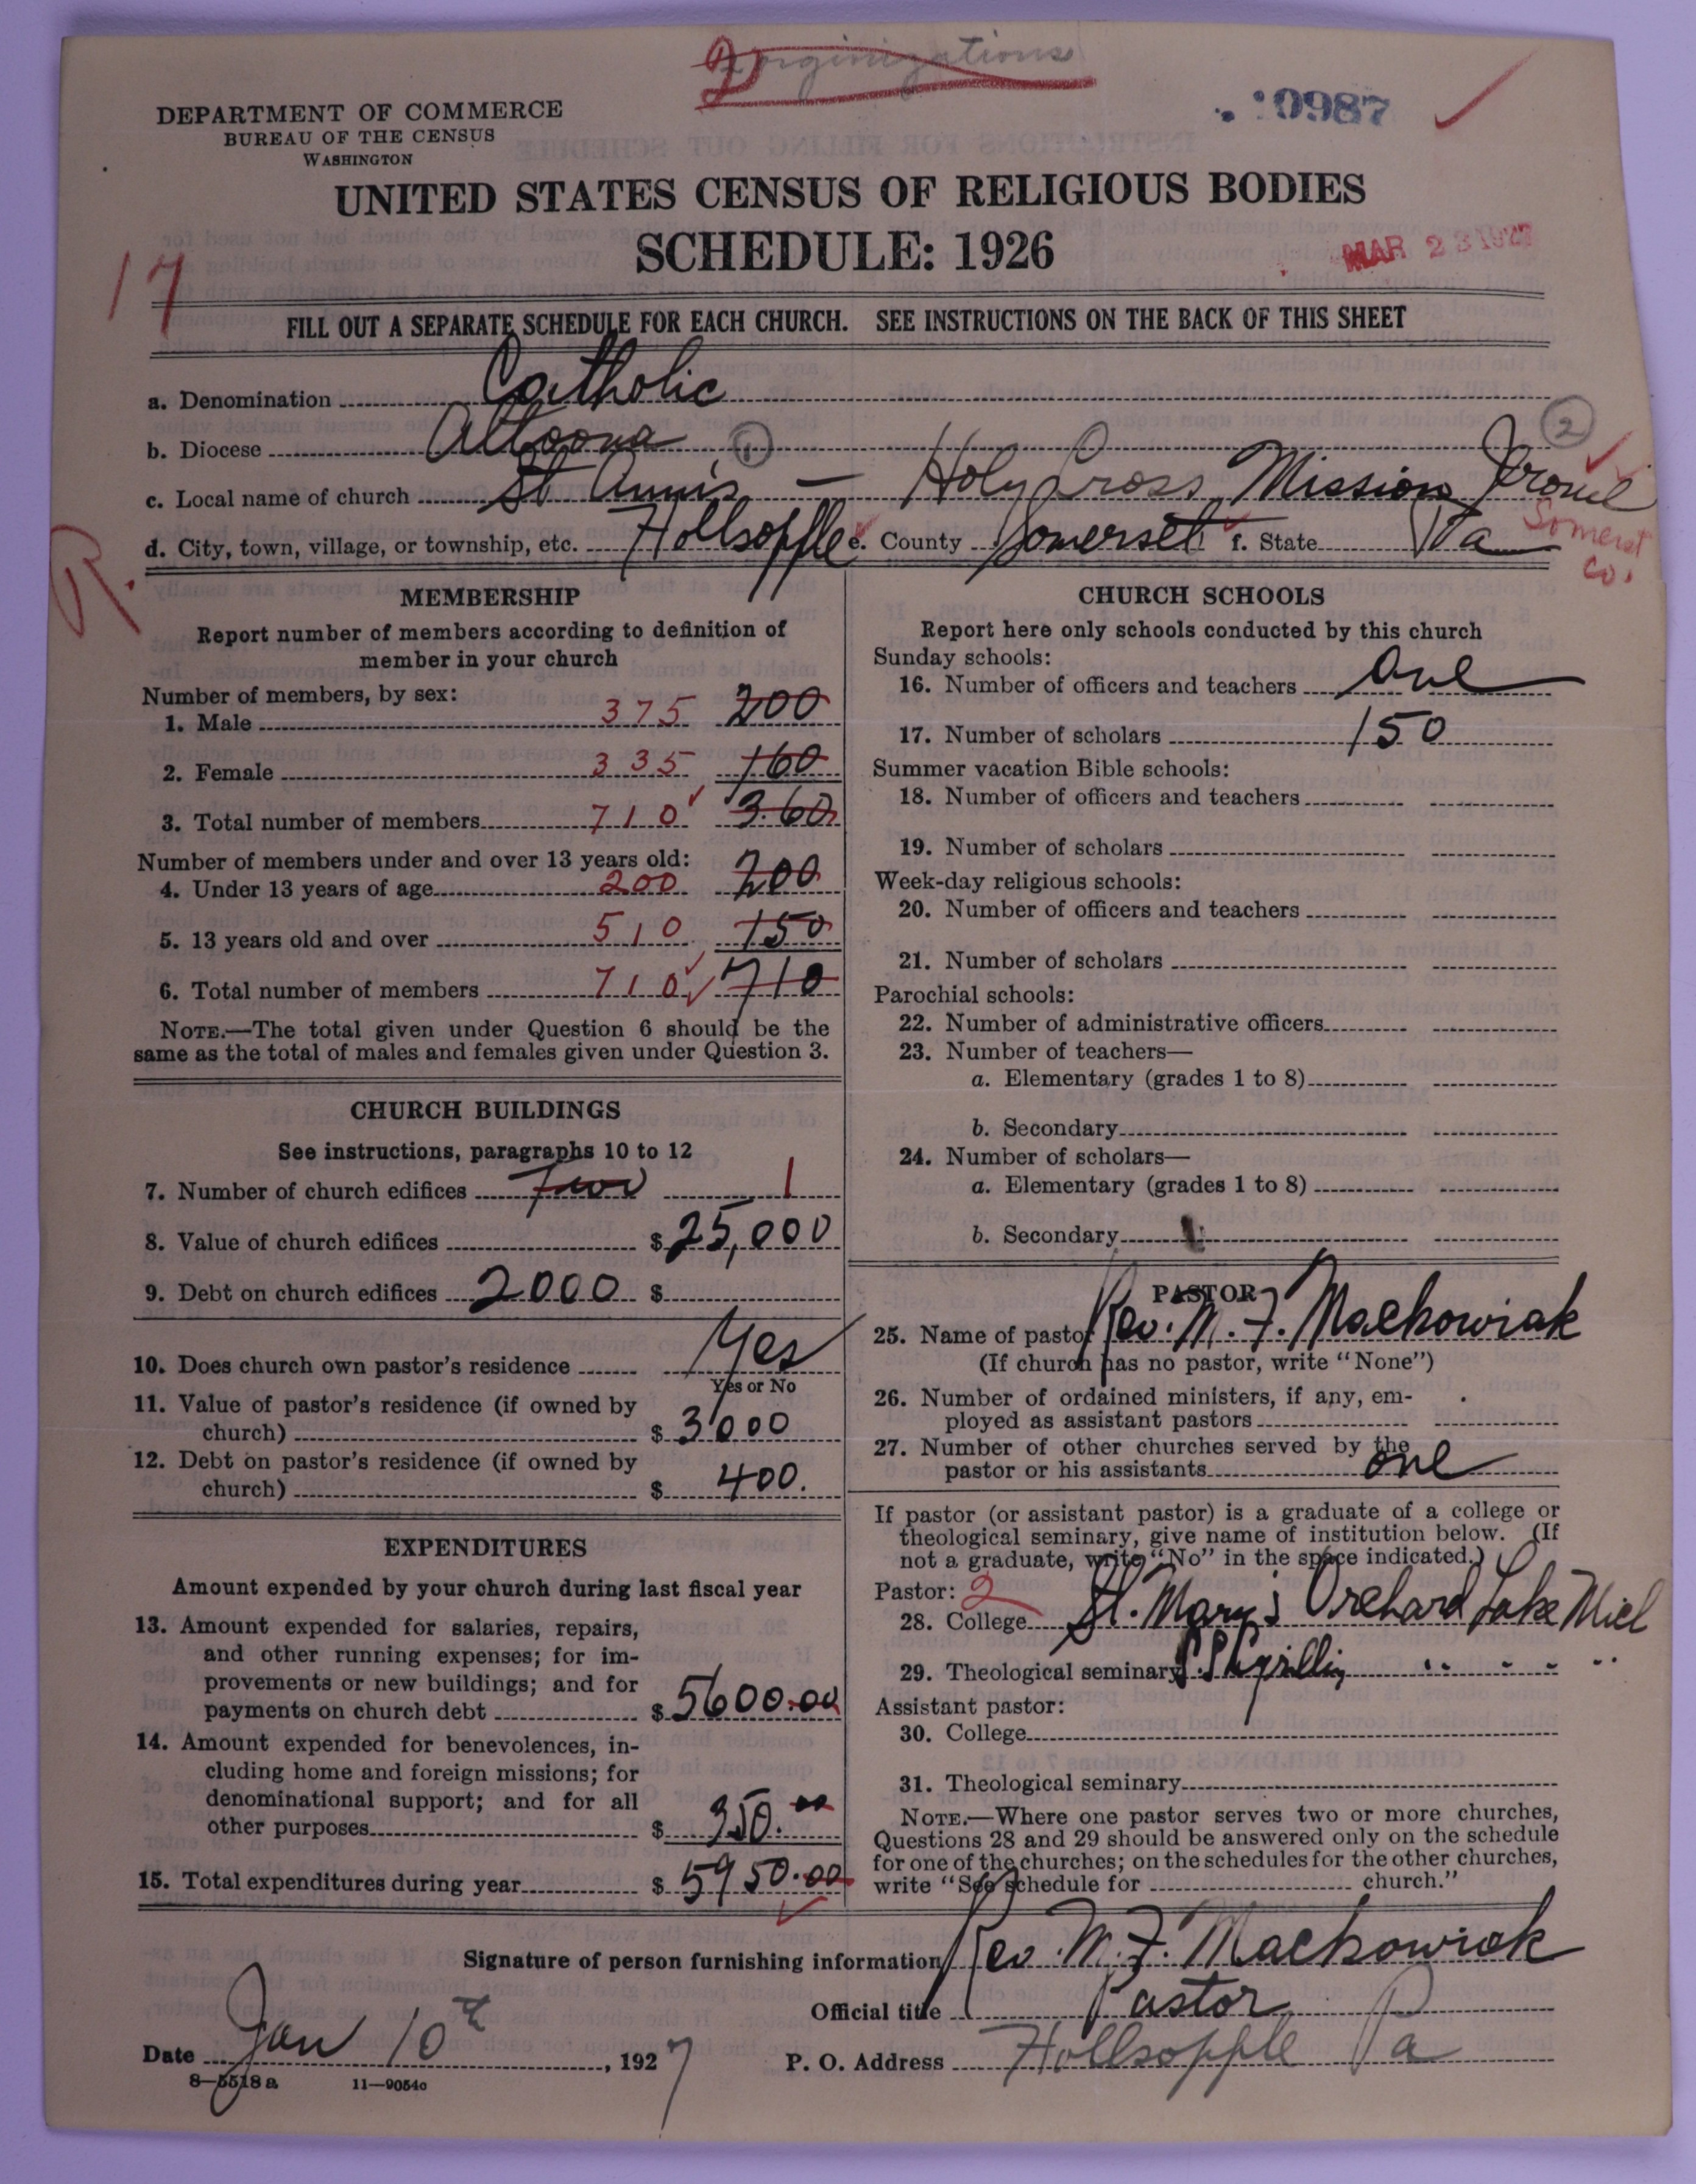 2 orginizations
DEPARTMENT OF COMMERCE
BUREAU OF THE CENSUS
WASHINGTON
10987
UNITED STATES CENSUS OF RELIGIOUS BODIES
SCHEDULE: 1926
MAR 23 1927
17
FILL OUT A SEPARATE SCHEDULE FOR EACH CHURCH. SEE INSTRUCTIONS ON THE BACK OF THIS SHEET
a. Denomination Catholic
b. Diocese Altoona 1 2
c. Local name of church St Ann's — Holy Cross Mission, Jerome
d. City, town, village, or township, etc. Hollsopple e. County Somerset f. State Pa
Somerset Co.
R.
MEMBERSHIP
Report number of members according to definition of member in your church
Number of members, by sex:
1. Male 375 200
2. Female 335 160
3. Total number of members 710 360
Number of members under and over 13 years old:
4. Under 13 years of age 200 200
5. 13 years old and over 510 150
6. Total number of members 710 710
NOTE.—The total given under Question 6 should be the
same as the total of males and females given under Question 3.
CHURCH BUILDINGS
See instructions, paragraphs 10 to 12
7. Number of church edifices Two 1
8. Value of church edifices $ 25,000
9. Debt on church edifices 2000 $
10. Does church own pastor's residence Yes
Yes or No
11. Value of pastor's residence (if owned by
church) $ 3000
12. Debt on pastor's residence (if owned by
church) $ 400.
EXPENDITURES
Amount expended by your church during last fiscal year
13. Amount expended for salaries, repairs,
and other running expenses; for im-
provements or new buildings; and for
payments on church debt $ 5600.00
14. Amount expended for benevolences, in-
cluding home and foreign missions; for
denominational support; and for all
other purposes $ 350.00
15. Total expenditures during year $ 5950.00
CHURCH SCHOOLS
Report here only schools conducted by this church
Sunday schools:
16. Number of officers and teachers One
17. Number of scholars 150
Summer vacation Bible schools:
18. Number of officers and teachers
19. Number of scholars
Week-day religious schools:
20. Number of officers and teachers
21. Number of scholars
Parochial schools:
22. Number of administrative officers
23. Number of teachers—
a. Elementary (grades 1 to 8)
b. Secondary
24. Number of scholars—
a. Elementary (grades 1 to 8)
b. Secondary
PASTOR
25. Name of pastor Rev. M. F. Mackowiak
(If church has no pastor, write "None")
26. Number of ordained ministers, if any, em-
ployed as assistant pastors
27. Number of other churches served by the
pastor or his assistants one
If pastor (or assistant pastor) is a graduate of a college or
theological seminary, give name of institution below. (If
not a graduate, write "No" in the space indicated.)
Pastor: 2
28. College St. Mary's Orchard Lake Mich
29. Theological seminary
Assistant pastor:
30. College
31. Theological seminary
NOTE.—Where one pastor serves two or more churches,
Questions 28 and 29 should be answered only on the schedule
for one of the churches; on the schedules for the other churches,
write "See schedule for church."
Signature of person furnishing information Rev. M. F. Mackowiak
Official title Pastor
Date Jan 10th, 1927 P. O. Address Hollsopple Pa
8—5518 a 11—9054c